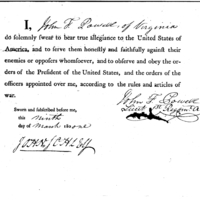 I, John F Powell - of Virginia
do solemnly swear to bear true allegiance to the United States of
America, and to serve them honestly and faithfully against their
enemies or opposers whomsoever, and to observe and obey the or-
ders of the President of the United States, and the orders of the
officers appointed over me, according to the rules and articles of
war.
John F Powell
Lieut
Sworn and subscribed before me,
this Ninth
day of